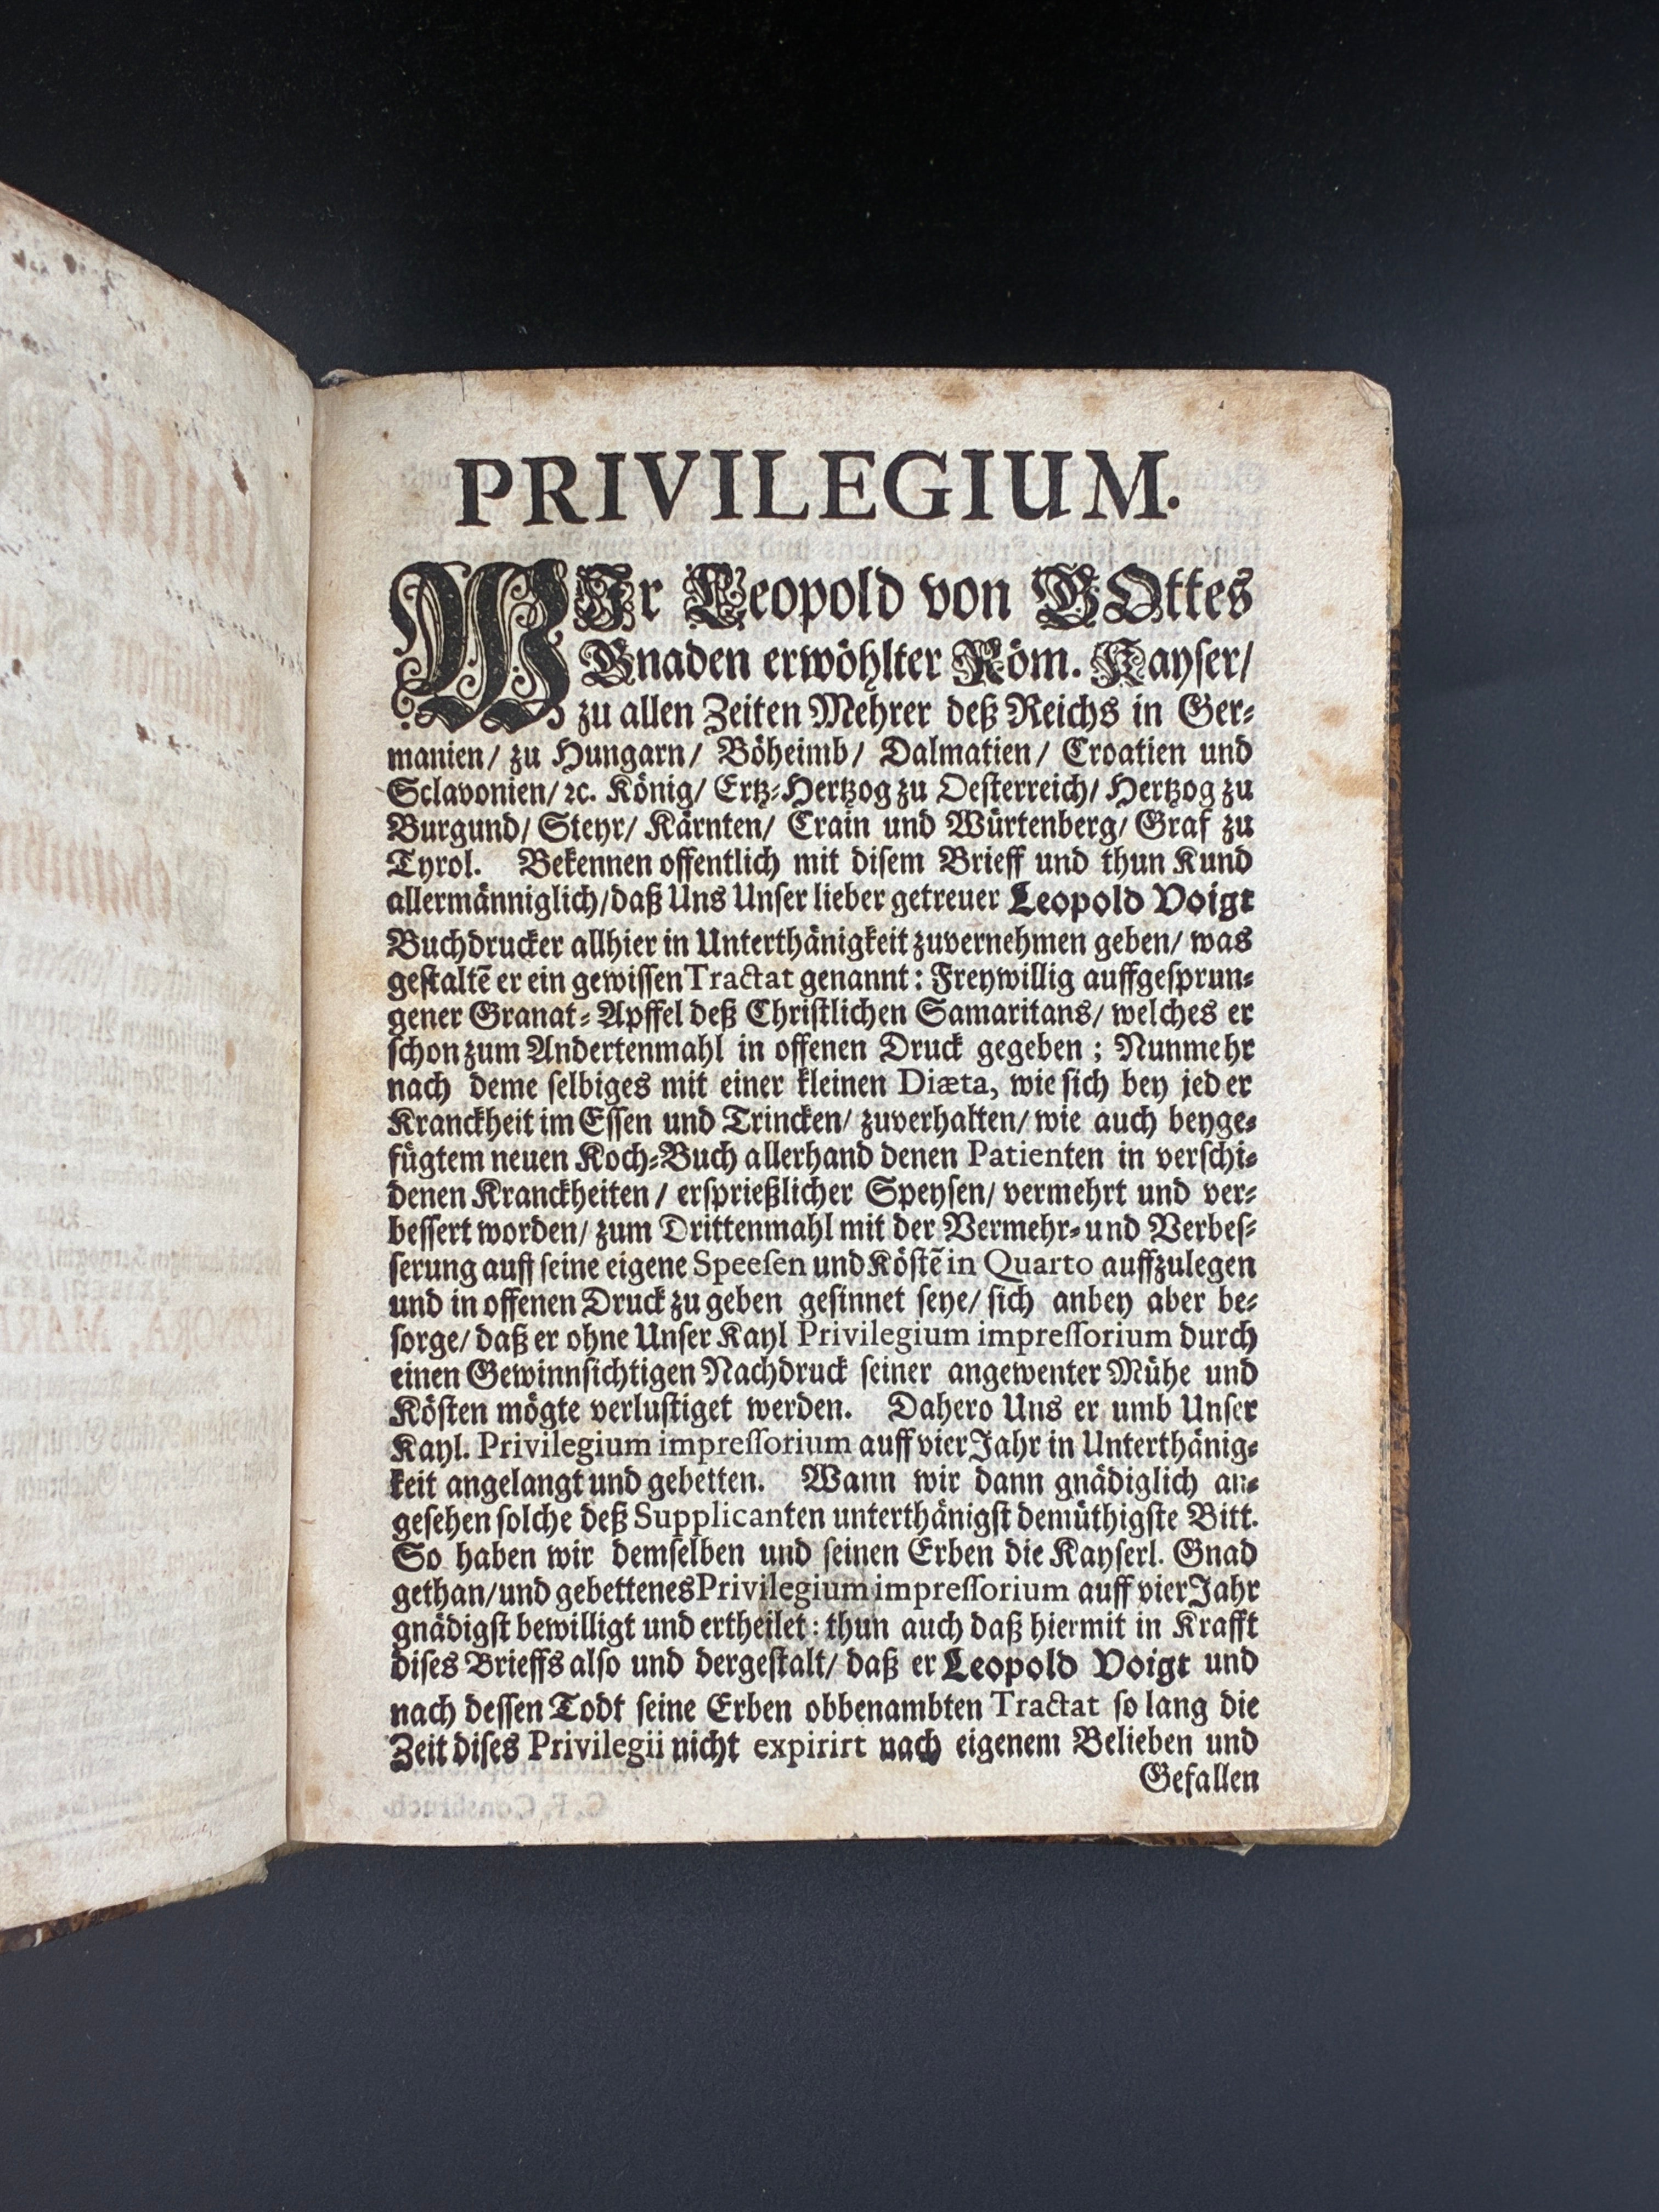 PRIVILEGIUM.
WIr Leopold von GOttes
Gnaden erwöhlter Röm. Kayser/
zu allen Zeiten Mehrer deß Reichs in Ger-
manien/ zu Hungarn/ Böheimb/ Dalmatien/ Croatien und
Sclavonien/ ꝛc. König/ Ertz-Hertzog zu Oesterreich/ Hertzog zu
Burgund/ Steyr/ Kärnten/ Crain und Würtenberg/ Graf zu
Tyrol. Bekennen offentlich mit disem Brieff und thun Kund
allermänniglich/daß Uns Unser lieber getreuer Leopold Voigt
Buchdrucker allhier in Unterthänigkeit zuvernehmen geben/ was
gestaltẽ er ein gewissen Tractat genannt: Freywillig auffgesprun-
gener Granat-Apffel deß Christlichen Samaritans/ welches er
schon zum Andertenmahl in offenen Druck gegeben; Nunmehr
nach deme selbiges mit einer kleinen Diæta, wie sich bey jeder
Kranckheit im Essen und Trincken/ zuverhalten/ wie auch beyge-
fügtem neuen Koch-Buch allerhand denen Patienten in verschi-
denen Kranckheiten/ ersprießlicher Speysen/ vermehrt und ver-
bessert worden/ zum Drittenmahl mit der Vermehr- und Verbes-
serung auff seine eigene Speesen und Köstẽ in Quarto auffzulegen
und in offenen Druck zu geben gesinnet seye/ sich anbey aber be-
sorge/ daß er ohne Unser Kayl Privilegium impressorium durch
einen Gewinnsichtigen Nachdruck seiner angewenter Mühe und
Kösten mögte verlustiget werden. Dahero Uns er umb Unser
Kayl. Privilegium impressorium auff vier Jahr in Unterthänig-
keit angelangt und gebetten. Wann wir dann gnädiglich an-
gesehen solche deß Supplicanten unterthänigst demüthigste Bitt.
So haben wir demselben und seinen Erben die Kayserl. Gnad
gethan/und gebettenes Privilegium impressorium auff vier Jahr
gnädigst bewilligt und ertheilet: thun auch daß hiermit in Krafft
dises Brieffs also und dergestalt/ daß er Leopold Voigt und
nach dessen Todt seine Erben obbenambten Tractat so lang die
Zeit dises Privilegii nicht expirirt nach eigenem Belieben und
Gefallen